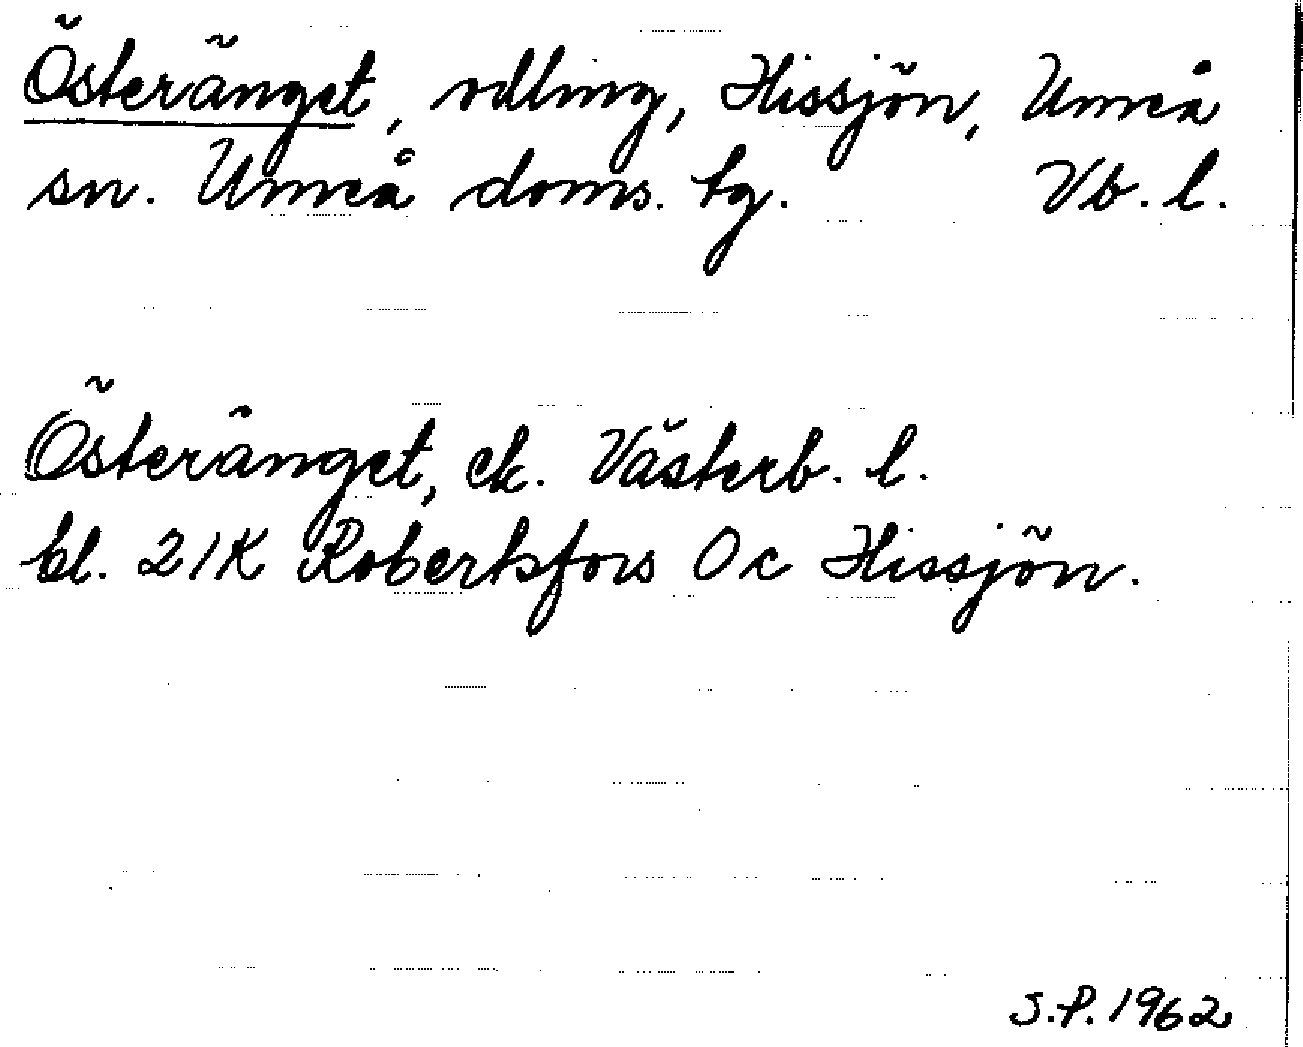 Österänget, odling, Hissjön, Umeå
sn. Umeå doms. tg. Vb. l.
Österänget, ek. Västerb. l.
bl. 21K Robertsfors 0c Hissjön.
S.P. 1962